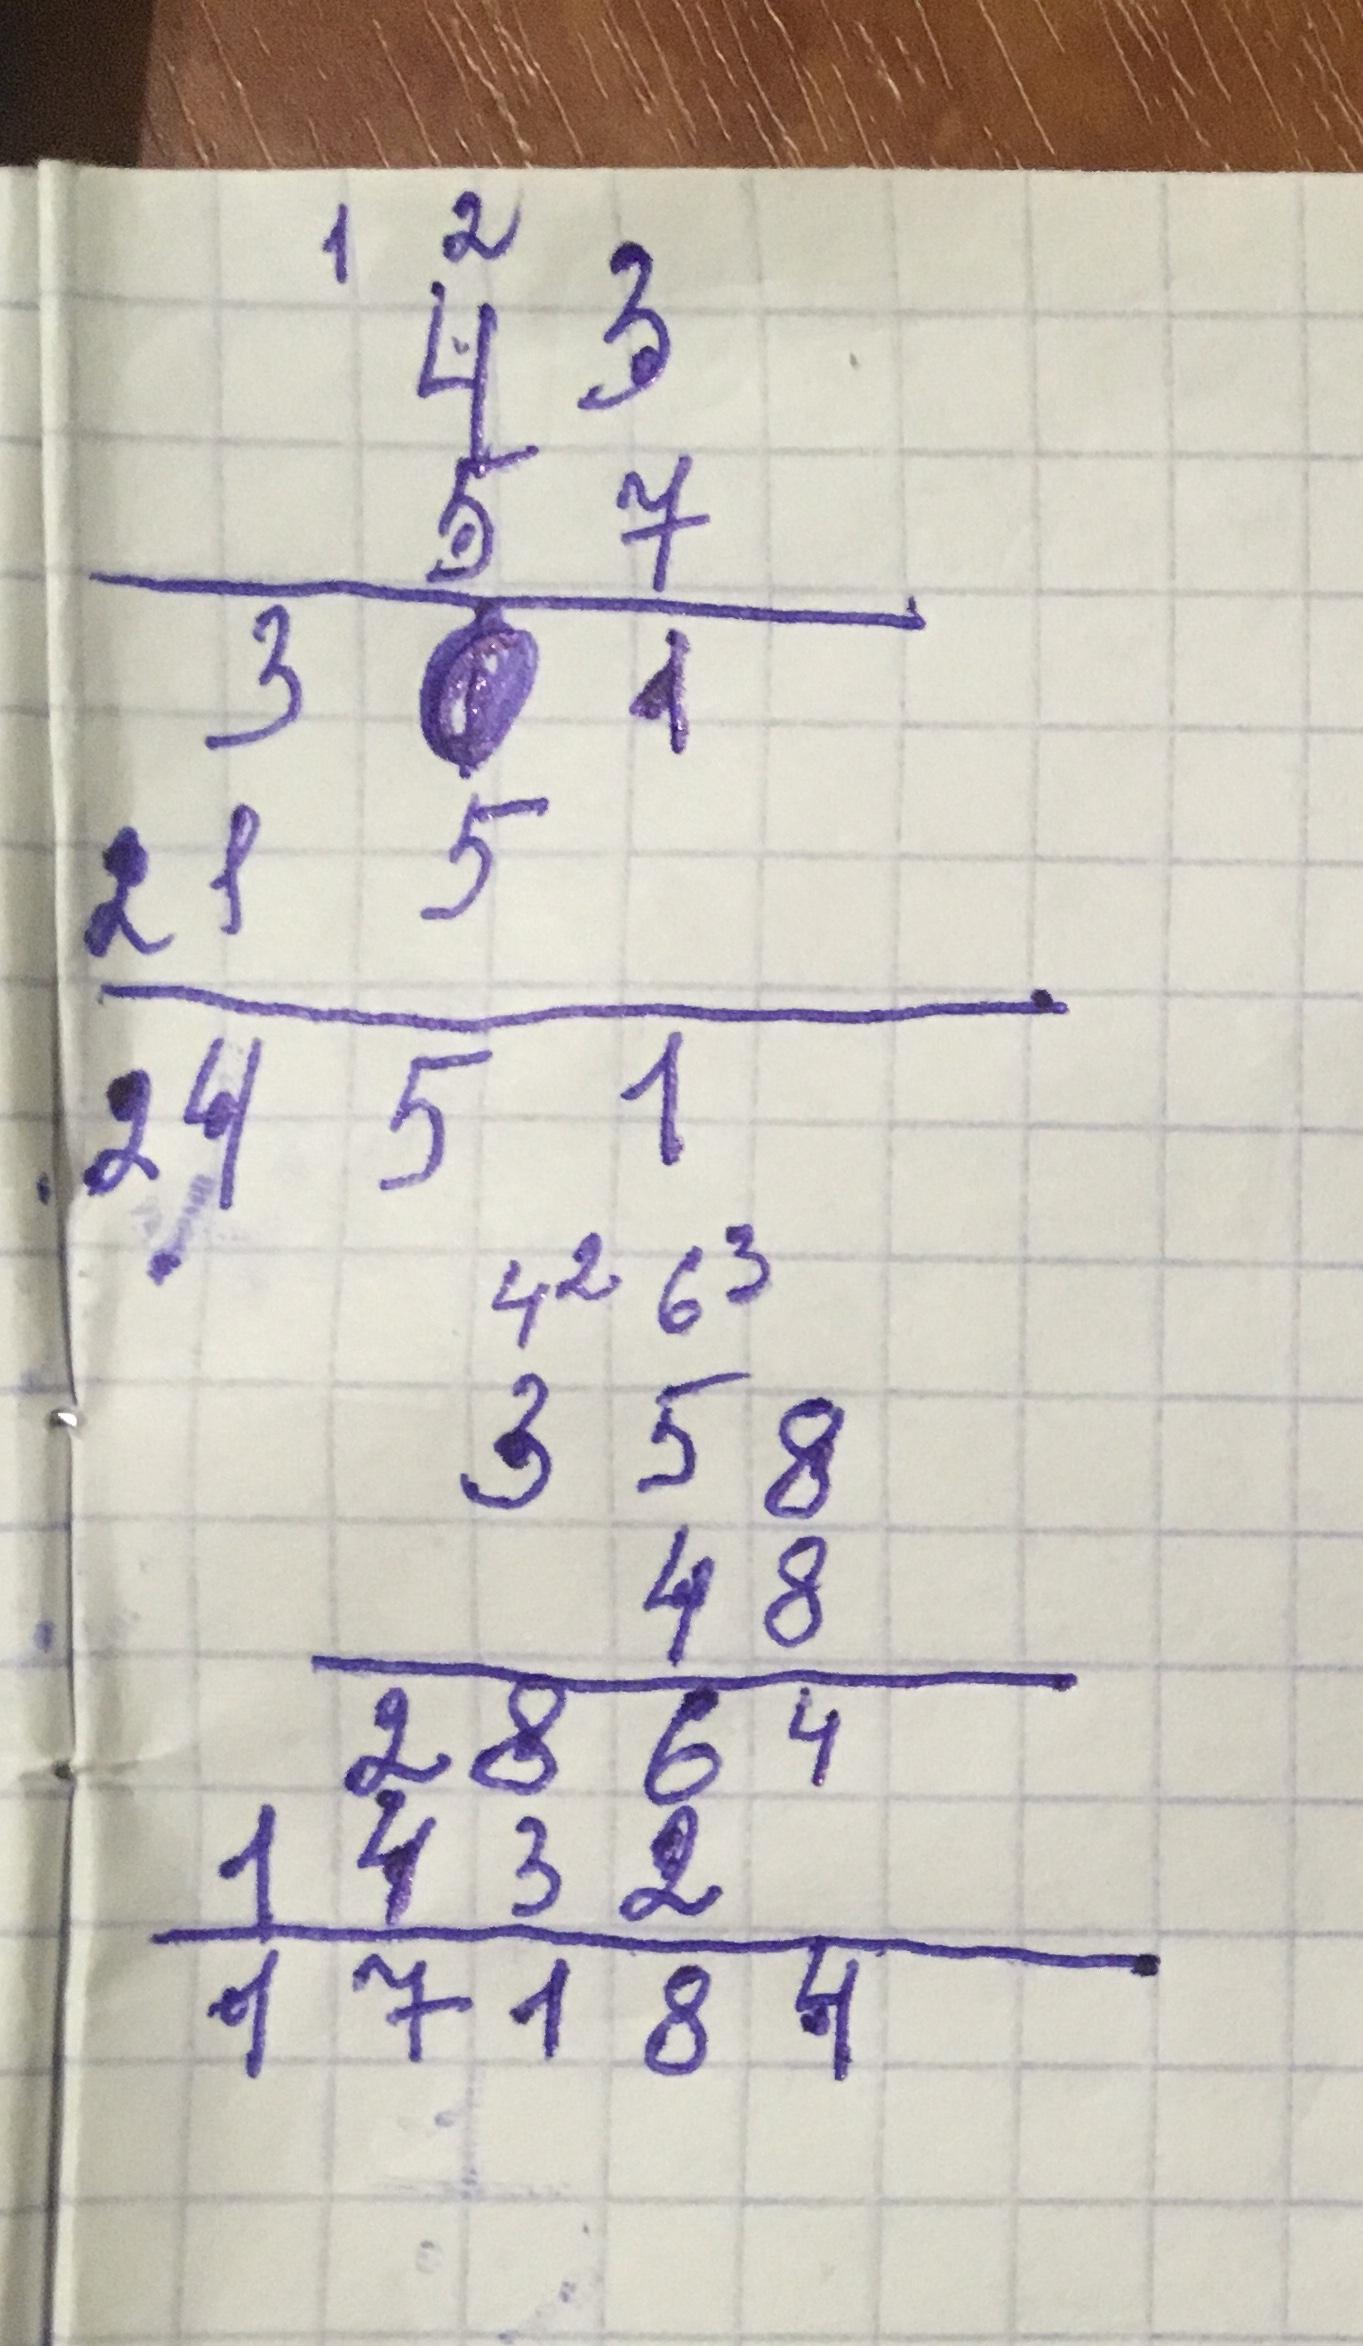 1 2
4 3
5 7
3 0 1
2 1 5
2 4 5 1
4 2 6 3
3 5 8
4 8
2 8 6 4
1 4 3 2
1 7 1 8 4